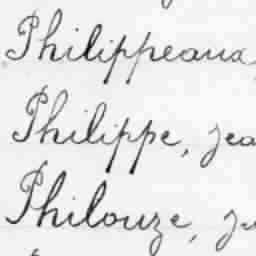 Philippeaux,
Philippe, jea
Philouze, je